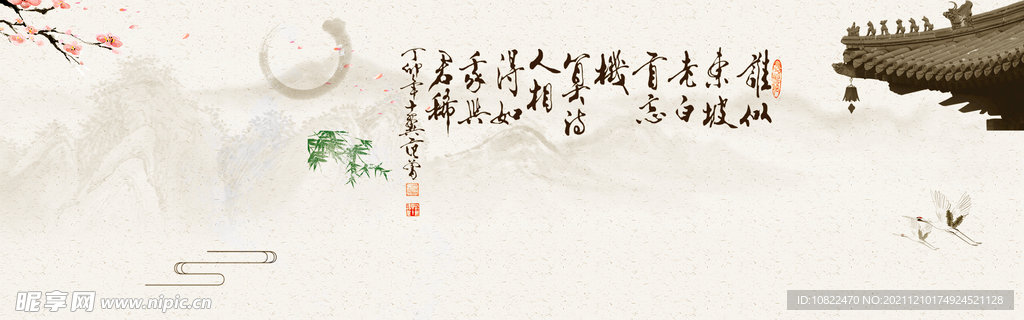 誰似
東坡
老白
首忘
機
算詩
人相
得如
我與
君稀
丁卯年十翼范曾
昵享网 www.nipic.cn
ID:10822470 NO:20211210174924521128